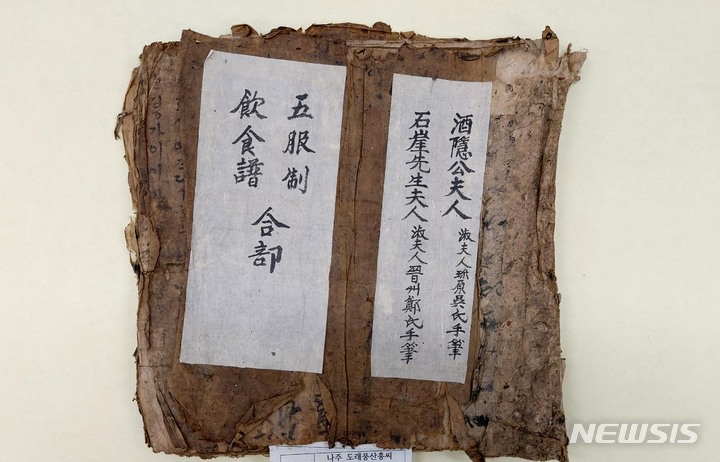 酒隱公夫人 淑夫人珎原吳氏手筆
石崖先生夫人 淑夫人晉州鄭氏手筆
五服制
飮食譜
合部
나주 도래풍산홍씨
NEWSIS